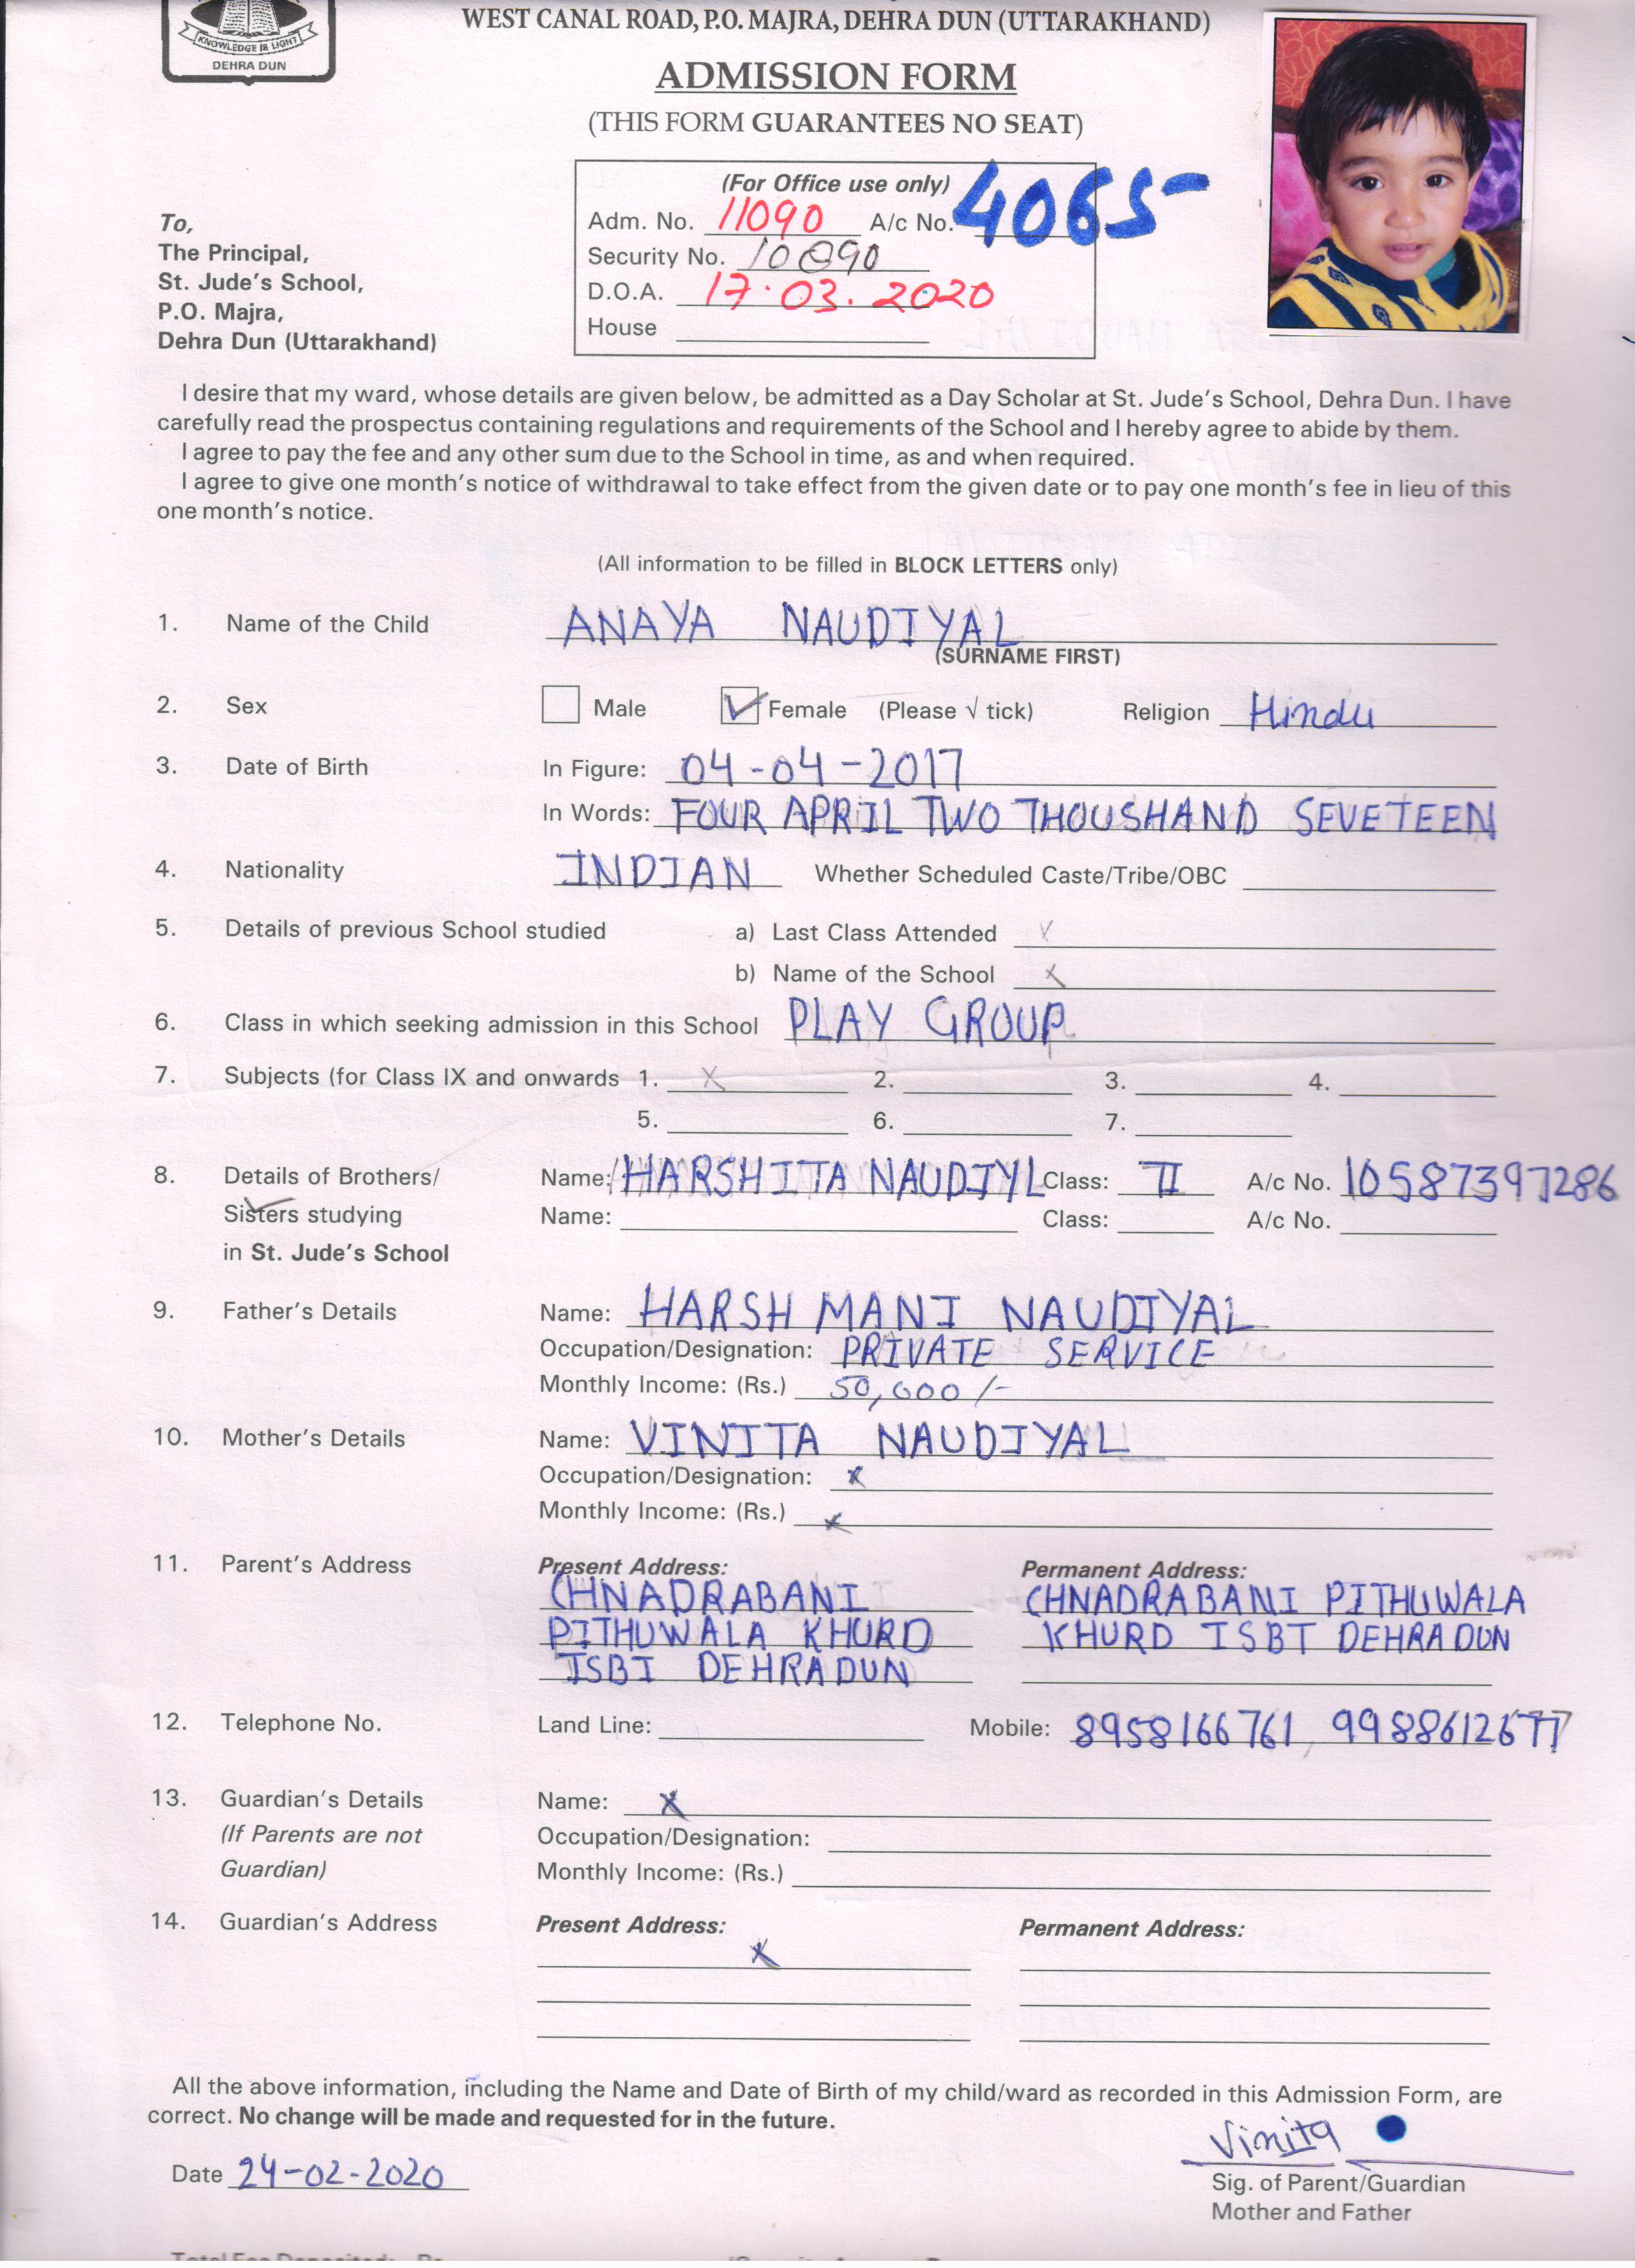 KNOWLEDGE IS LIGHT
DEHRA DUN
WEST CANAL ROAD, P.O. MAJRA, DEHRA DUN (UTTARAKHAND)
ADMISSION FORM
(THIS FORM GUARANTEES NO SEAT)
(For Office use only)
Adm. No. 11090 A/c No. 4065
Security No. 10890
D.O.A. 17.03.2020
House
To,
The Principal,
St. Jude's School,
P.O. Majra,
Dehra Dun (Uttarakhand)
I desire that my ward, whose details are given below, be admitted as a Day Scholar at St. Jude's School, Dehra Dun. I have
carefully read the prospectus containing regulations and requirements of the School and I hereby agree to abide by them.
I agree to pay the fee and any other sum due to the School in time, as and when required.
I agree to give one month's notice of withdrawal to take effect from the given date or to pay one month's fee in lieu of this
one month's notice.
(All information to be filled in BLOCK LETTERS only)
1. Name of the Child ANAYA NAUDIYAL
(SURNAME FIRST)
2. Sex Male Female (Please √ tick) Religion Hindu
3. Date of Birth In Figure: 04-04-2017
In Words: FOUR APRIL TWO THOUSHAND SEVETEEN
4. Nationality INDIAN Whether Scheduled Caste/Tribe/OBC
5. Details of previous School studied a) Last Class Attended
b) Name of the School x
6. Class in which seeking admission in this School PLAY GROUP
7. Subjects (for Class IX and onwards 1. X 2. 3. 4.
5. 6. 7.
8. Details of Brothers/ Name: HARSHITA NAUDIYL Class: II A/c No. 10587397286
Sisters studying Name: Class: A/c No.
in St. Jude's School
9. Father's Details Name: HARSH MANI NAUDIYAL
Occupation/Designation: PRIVATE SERVICE
Monthly Income: (Rs.) 50,000/-
10. Mother's Details Name: VINITA NAUDIYAL
Occupation/Designation: x
Monthly Income: (Rs.) x
11. Parent's Address Present Address: Permanent Address:
CHNADRABANI CHNADRABANI PITHUWALA
PITHUWALA KHURD KHURD ISBT DEHRADUN
ISBI DEHRADUN
12. Telephone No. Land Line: Mobile: 8958166761, 9988612677
13. Guardian's Details Name: X
(If Parents are not Occupation/Designation:
Guardian) Monthly Income: (Rs.)
14. Guardian's Address Present Address: Permanent Address:
x
All the above information, including the Name and Date of Birth of my child/ward as recorded in this Admission Form, are
correct. No change will be made and requested for in the future.
Vinita
Date 24-02-2020
Sig. of Parent/Guardian
Mother and Father